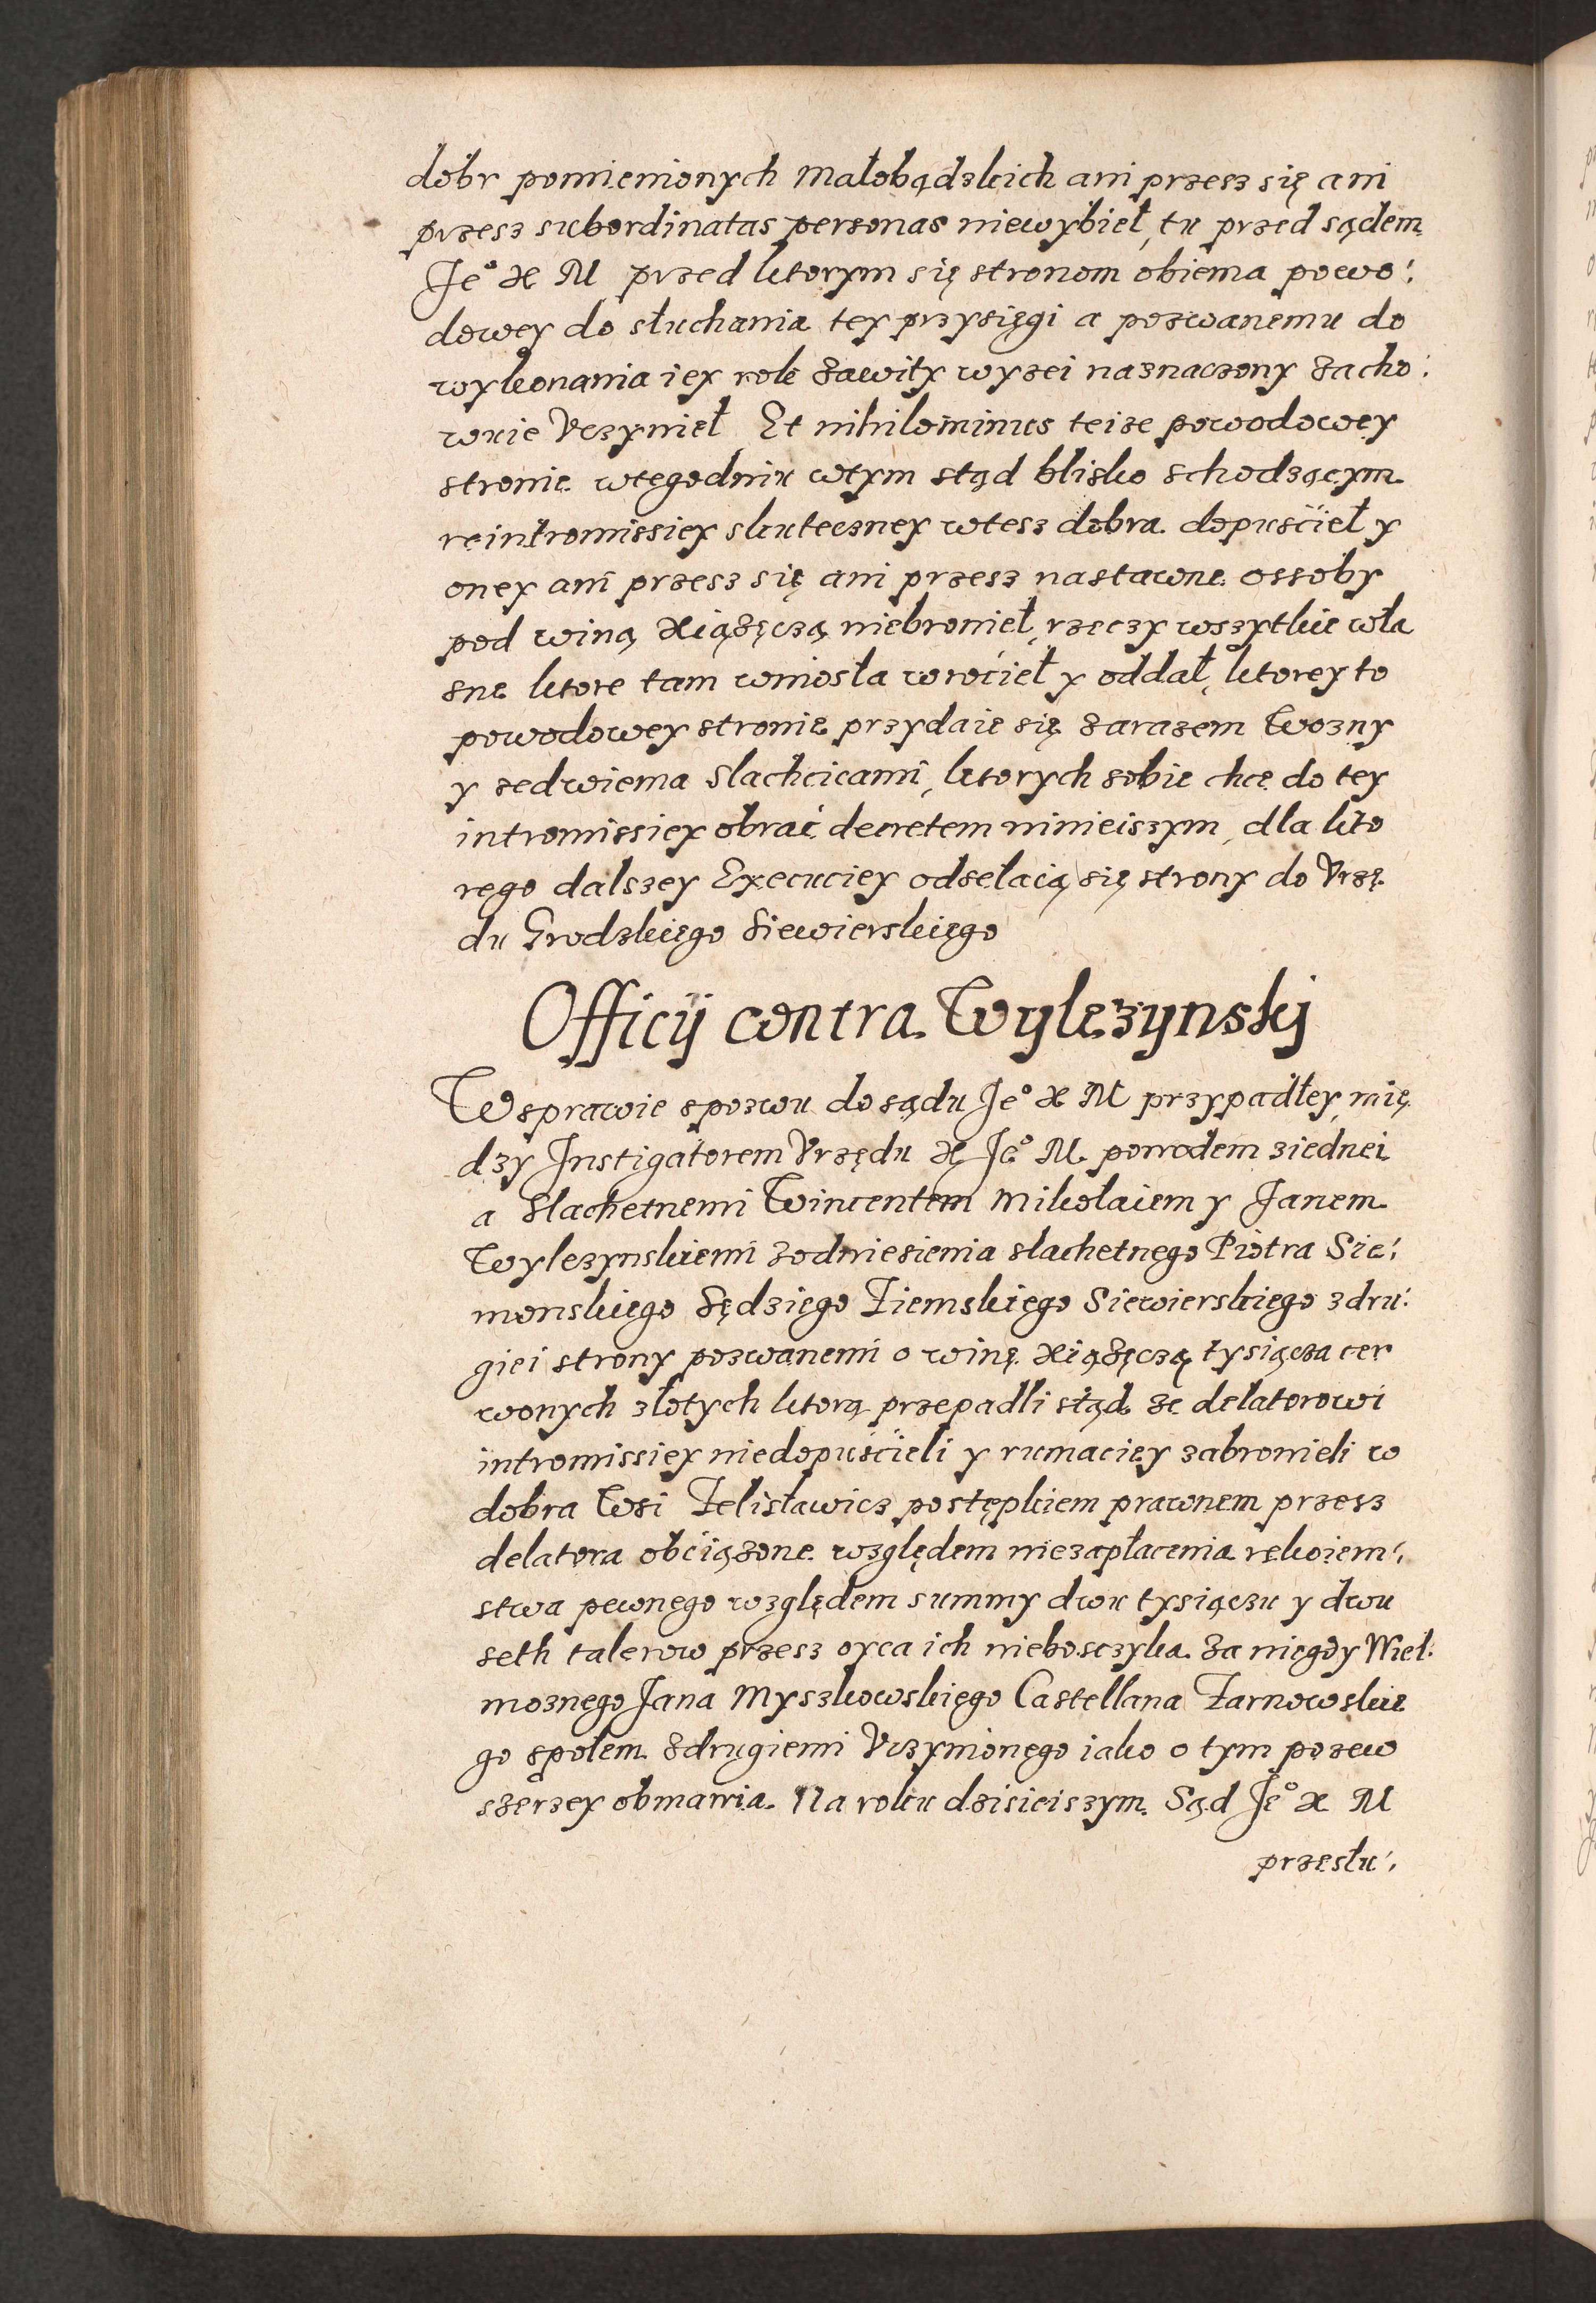 dobr pomienionych Małobądzkich ani przesz się ani
przesz subordinatas personas niewybieł, tu przed sądem
Je° X M przed ktorym się stronom obiema powo:
dowey do słuchania tey przysięgi a pozwanemu do
wykonania iey rok zawity wyzei naznaczony zacho:
wuie Vczynieł Et nihilominus teize powodowey
stronie wtegodniu wtym stąd blisko schodzącym
reintromissiey skuteczney wtesz dobra dopuścieł y
oney ani przesz się ani przesz nastawne ossoby
pod winą Xiązęczą niebronieł, rzeczy wszytkie wła
sne ktore tam wniosła wrocieł y oddał, ktorey to
powodowey stronie przydaie się zarazem Wozny
y zedwiema Slachcicami, ktorych sobie chce do tey
intromissiey obrać decretem ninieiszym, dla kto
rego dalszey Executiey odsełaią się strony do Vrzę
du Grodzkiego Siewierskiego
Officij contra Wylezynskj
Wsprawie spozwu do sądu Je° X M przypadłey, mię
dzy Instigatorem Vrzędu X Je° M powodem ziednei
a Slachetnemi Wincentem Mikołaiem y Janem
Wylezynskiemi zodniesienia slachetnego Piotra Sie:
monskiego Sędziego Ziemskiego Siewierskiego zdru:
giei strony pozwanemi o winę Xiązęczą tysiącza cer
wonych złotych ktorą przepadli stąd ze delatorowi
intromissiey niedopuścieli y rumaciey zabronieli w
dobra Wsi Zelisławicz postępkiem prawnem przesz
delatora obciązone względem niezapłacenia rękoiem:
stwa pewnego względem summy dwu tysiączu y dwu
seth talerow przesz oyca ich nieboszczyka za niegdy Wiel:
moznego Jana Myszkowskiego Castellana Zarnowskie
go społem zdrugiemi Vczynionego iako o tym pozew
szerzey obmawia. Na roku dzisieiszym Sąd Je° X M
przesłu: